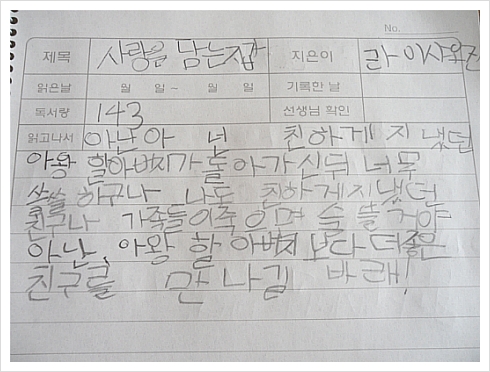 No.
제목 사랑을 담는 지갑 지은이 라이사욱진
읽은날 월 일 ~ 월 일 기록한 날
독서량 143 선생님 확인
읽고나서 아난아 넌 친하게 지냈던
아왕 할아버지가 돌아가신뒤 너무
쓸쓸 하구나 나도 친하게지냈던
친구나 가족들이죽으며 슥 쓸거야
아난, 아왕 할아버지 보다 더좋은
친구를 만나길 바래!